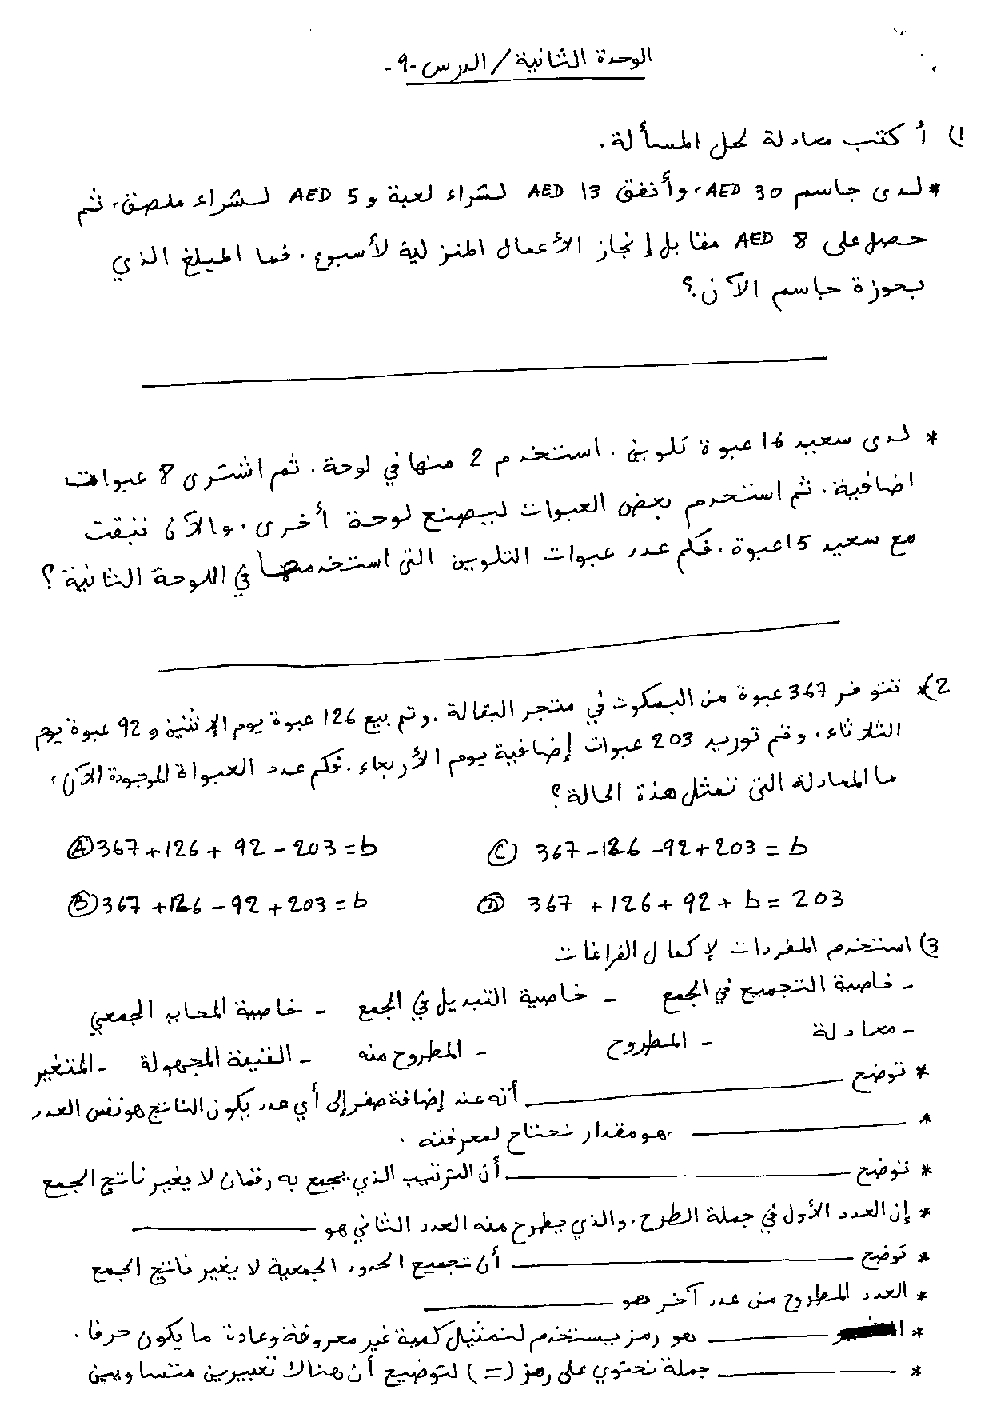 الوحدة الثانية / الدرس -9-
1) أكتب معادلة لحل المسألة.
* لدى جاسم 30 AED، وأنفق 13 AED لشراء لعبة و 5 AED لشراء ملصق، ثم
حصل على 8 AED مقابل إنجاز الأعمال المنزلية لأسبوع. فما المبلغ الذي
بحوزة جاسم الآن؟
* لدى سعيد 16 عبوة تلوين. استخدم 2 منها في لوحة. ثم اشترى 8 عبوات
اضافية. ثم استخدم بعض العبوات ليصنع لوحة أخرى. والآن تبقت
مع سعيد 15 عبوة. فكم عدد عبوات التلوين التي استخدمها في اللوحة الثانية؟
2)* تتوفر 367 عبوة من البسكوت في متجر البقالة. وتم بيع 126 عبوة يوم الإثنين و 92 عبوة يوم
الثلاثاء. وتم توريد 203 عبوات إضافية يوم الأربعاء. فكم عدد العبواة الموجودة الآن،
ما المعادلة التي تمثل هذة الحالة؟
Ⓐ 367 + 126 + 92 - 203 = b Ⓒ 367 - 126 - 92 + 203 = b
Ⓑ 367 + 126 - 92 + 203 = b Ⓓ 367 + 126 + 92 + b = 203
3) استخدم المفردات لإكمال الفراغات
- خاصية التجميع في الجمع - خاصية التبديل في الجمع - خاصية المحايد الجمعي
- معادلة - المطروح - المطروح منه - القيمة المجهولة - المتغير
* توضح ـــــــــ أنه عند إضافة صفر إلى أي عدد يكون الناتج هو نفس العدد
* ـــــــــ هو مقدار نحتاج لمعرفته.
* توضح ـــــــــ أن الترتيب الذي يجمع به رقمان لا يغير ناتج الجمع
* إن العدد الأول في جملة الطرح. والذي يطرح منه العدد الثاني هو ـــــــــ
* توضح ـــــــــ أن تجميع الحدود الجمعية لا يغير ناتج الجمع
* العدد المطروح من عدد آخر هو ـــــــــ
* ـــــــــ هو رمز يستخدم لتمثيل كمية غير معروفة وعادة ما يكون حرفا.
* ـــــــــ جملة تحتوي على رمز (=) لتوضيح أن هناك تعبيرين متساويين